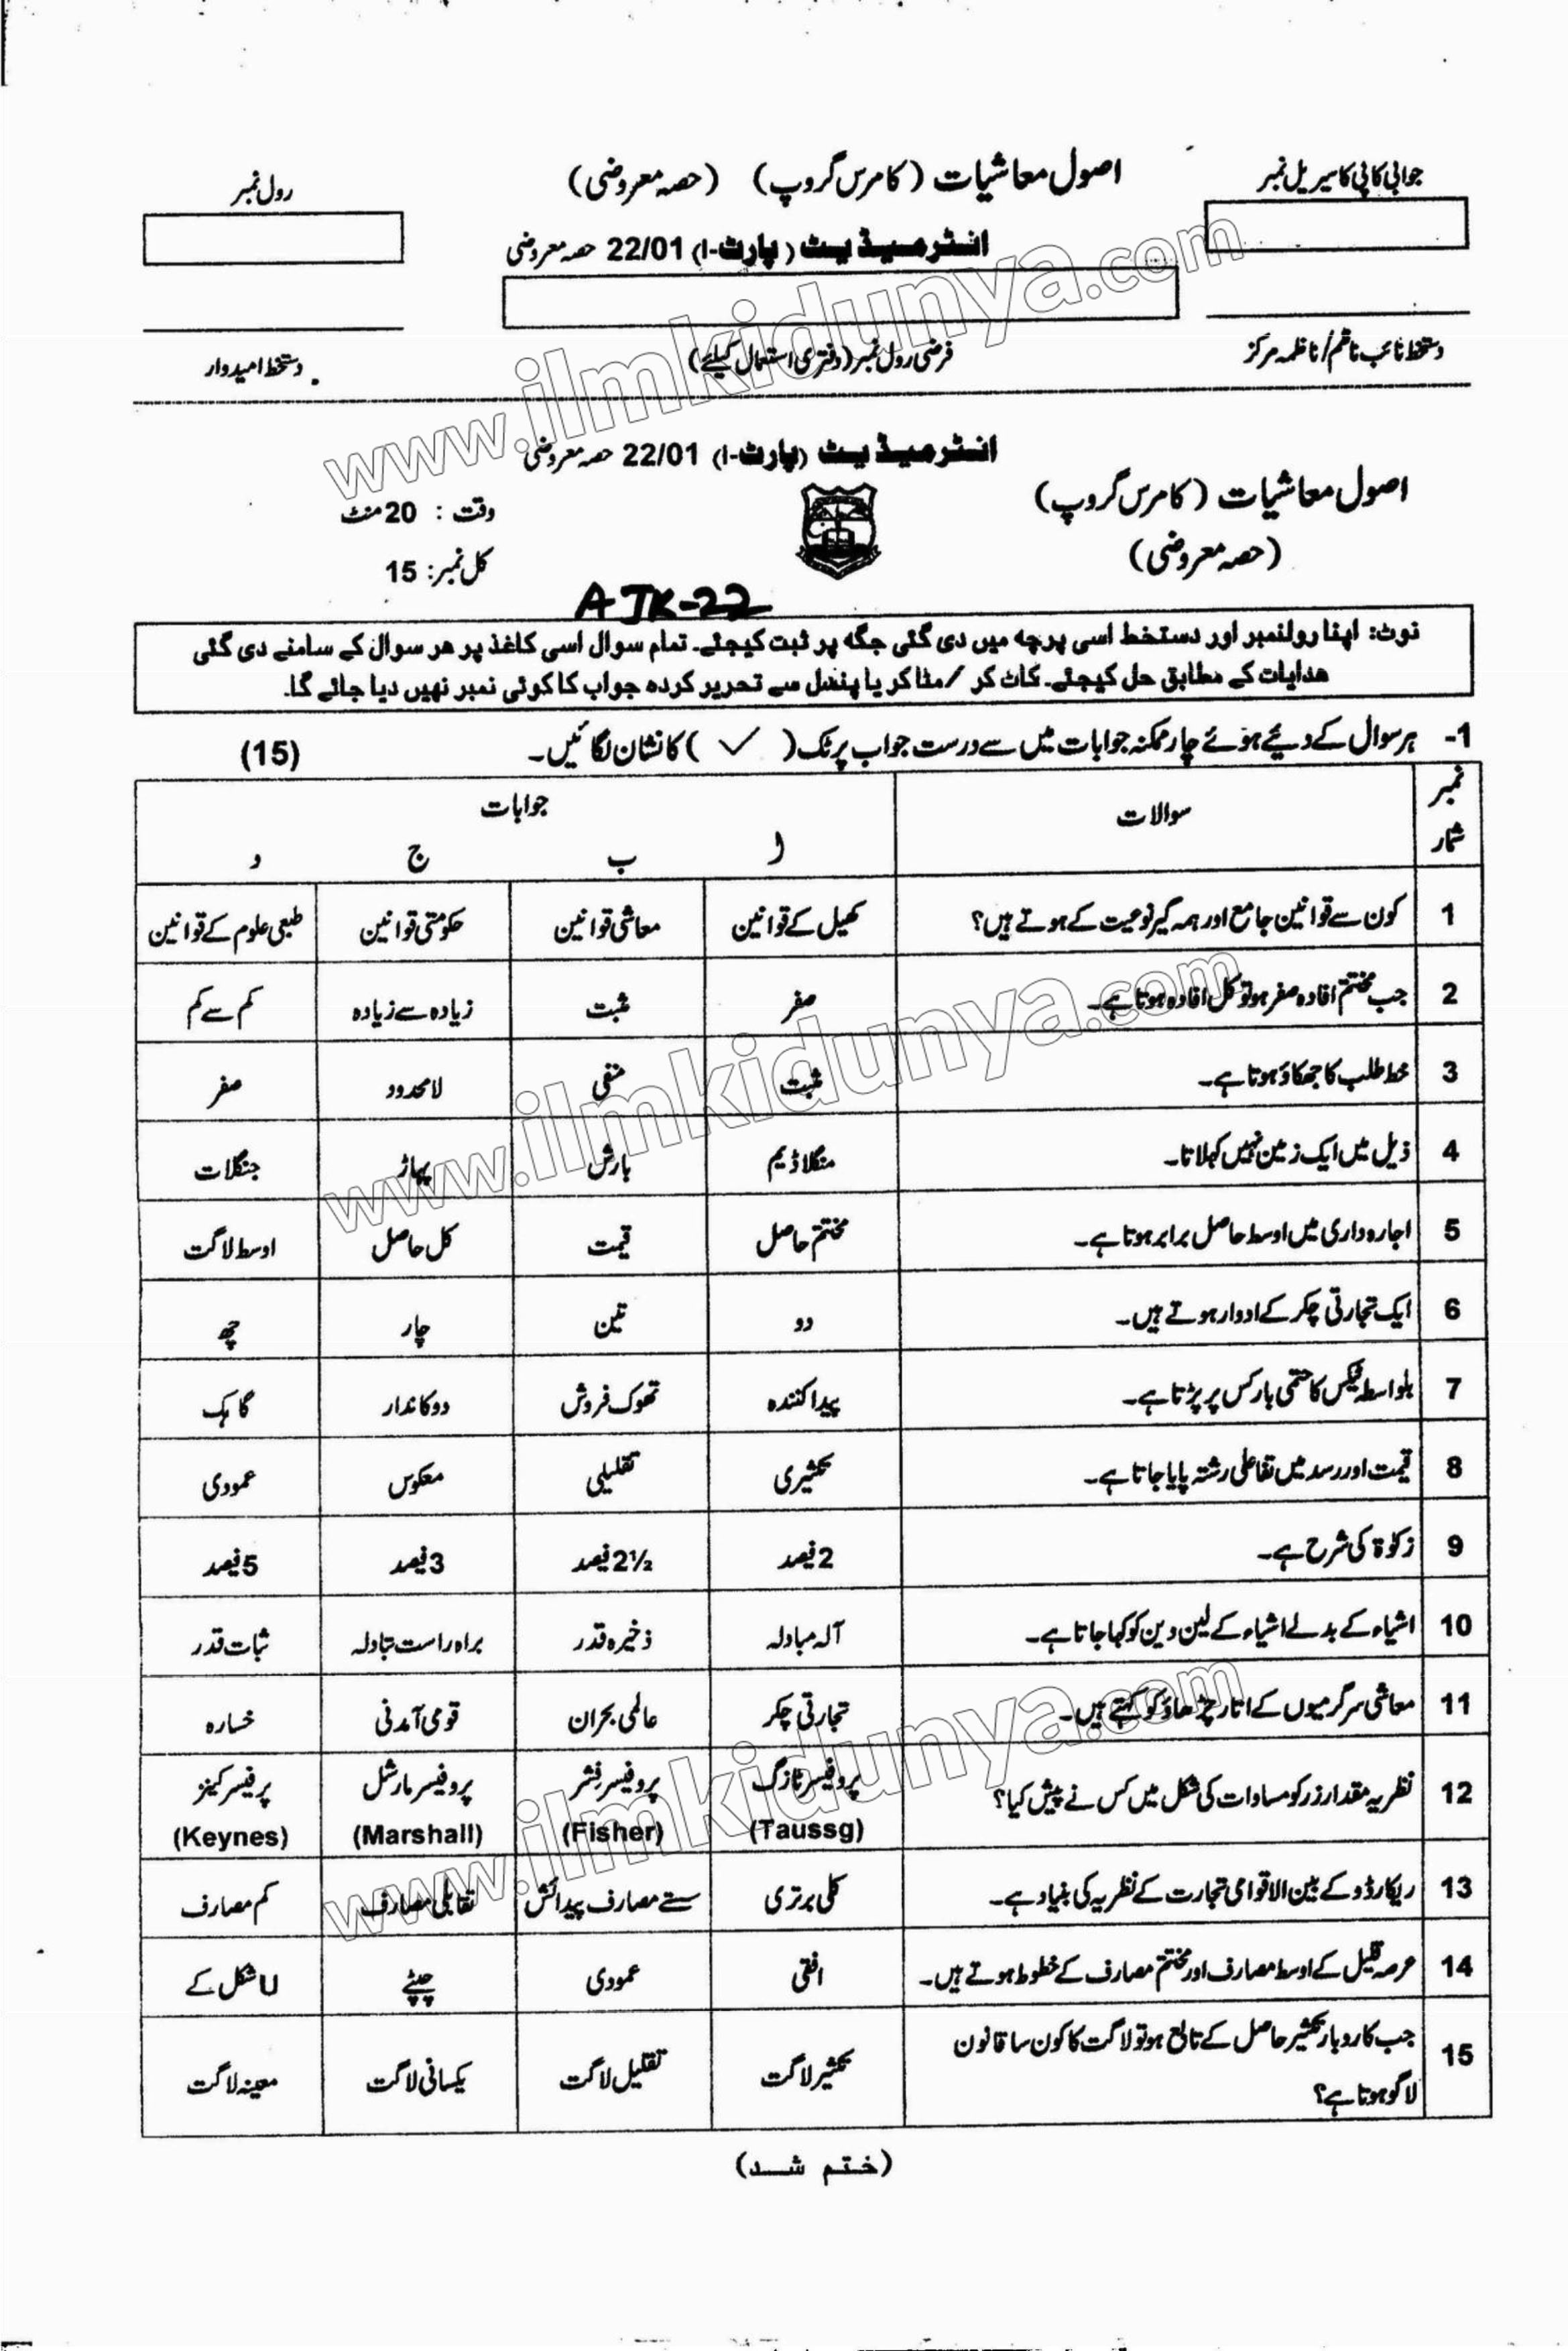 جوابی کاپی کا سیریل نمبر
اصول معاشیات (کامرس گروپ) (حصہ معروضی)
رول نمبر
انٹرمیڈیٹ (پارٹ-I) 22/01 حصہ معروضی
دستخط نائب ناظم/ناظمہ مرکز
فرضی رول نمبر (دفتری استعمال کیلئے)
دستخط امیدوار
www.ilmkidunya.com
انٹرمیڈیٹ (پارٹ-I) 22/01 حصہ معروضی
اصول معاشیات (کامرس گروپ)
وقت : 20 منٹ
(حصہ معروضی)
کل نمبر: 15
AJK-22
نوٹ: اپنا رولنمبر اور دستخط اسی پرچہ میں دی گئی جگہ پر ثبت کیجئے۔ تمام سوال اسی کاغذ پر ھر سوال کے سامنے دی گئی
ھدایات کے مطابق حل کیجئے۔ کاٹ کر / مٹا کر یا پنسل سے تحریر کردہ جواب کا کوئی نمبر نھیں دیا جائے گا۔
1- ہر سوال کے دیئے ہوئے چار ممکنہ جوابات میں سے درست جواب پر ٹک ( ✓ ) کا نشان لگائیں۔ (15)
نمبر شمار سوالات جوابات
ا ب ج د
1 کون سے قوانین جامع اور ہمہ گیر نوعیت کے ہوتے ہیں؟ کھیل کے قوانین معاشی قوانین حکومتی قوانین طبعی علوم کے قوانین
2 جب مختتم افادہ صفر ہو تو کل افادہ ہوتا ہے۔ صفر مثبت زیادہ سے زیادہ کم سے کم
www.ilmkidunya.com
3 خط طلب کا جھکاؤ ہوتا ہے۔ مثبت منفی لامحدود صفر
4 ذیل میں ایک زمین نہیں کہلاتا۔ منگلا ڈیم بارش پہاڑ جنگلات
5 اجارہ داری میں اوسط حاصل برابر ہوتا ہے۔ مختتم حاصل قیمت کل حاصل اوسط لاگت
6 ایک تجارتی چکر کے ادوار ہوتے ہیں۔ دو تین چار چھ
7 بلواسطہ ٹیکس کا حتمی بار کس پر پڑتا ہے۔ پیدا کنندہ تھوک فروش دوکاندار گاہک
8 قیمت اور رسد میں تفاعلی رشتہ پایا جاتا ہے۔ تکثیری تقلیلی معکوس عمودی
9 زکوٰۃ کی شرح ہے۔ 2 فیصد 2½ فیصد 3 فیصد 5 فیصد
10 اشیاء کے بدلے اشیاء کے لین دین کو کہا جاتا ہے۔ آلہ مبادلہ ذخیرہ قدر براہ راست تبادلہ ثبات قدر
11 معاشی سرگرمیوں کے اتار چڑھاؤ کو کہتے ہیں۔ تجارتی چکر عالمی بحران قومی آمدنی خسارہ
www.ilmkidunya.com
12 نظریہ مقدار زر کو مساوات کی شکل میں کس نے پیش کیا؟ پروفیسر ٹازگ پروفیسر فشر پروفیسر مارشل پرفیسر کینز
(Taussg) (Fisher) (Marshall) (Keynes)
13 ریکارڈو کے بین الاقوامی تجارت کے نظریہ کی بنیاد ہے۔ کلی برتری سستے مصارف پیدائش تقابلی مصارف کم مصارف
14 عرصہ قلیل کے اوسط مصارف اور مختتم مصارف کے خطوط ہوتے ہیں۔ افقی عمودی چپٹے U شکل کے
15 جب کاروبار تکثیر حاصل کے تابع ہو تو لاگت کا کون سا قانون
لاگو ہوتا ہے؟ تکثیر لاگت تقلیل لاگت یکسانی لاگت معینہ لاگت
(ختم شد)